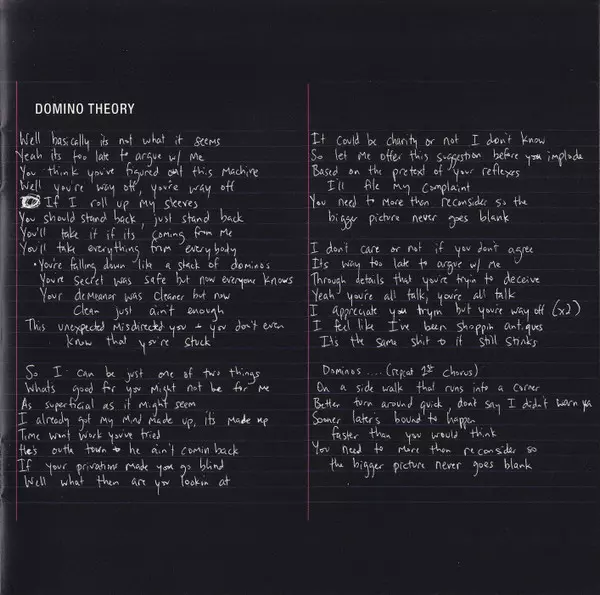 DOMINO THEORY
Well basically its not what it seems
Yeah its too late to argue w/ me
You think you've figured out this machine
Well you're way off, you're way off
If I roll up my sleeves
You should stand back, just stand back
You'll take it if its coming from me
You'll take everything from everybody
You're falling down like a stack of dominos
Youre secret was safe but now everyone knows
Your demeanor was cleaner but now
Clean just ain't enough
This unexpected misdirected you + you don't even
know that you're stuck
So I can be just one of two things
Whats good for you might not be for me
As superficial as it might seem
I already got my mind made up, its made up
Time wont work you've tried
He's outta town + he ain't comin back
If your privation made you go blind
Well what then are you lookin at
It could be charity or not I don't know
So let me offer this suggestion before you implode
Based on the pretext of your reflexes
I'll file my complaint
You need to more than reconsider so the
bigger picture never goes blank
I don't care or not if you don't agree
Its way too late to argue w/ me
Through details that you're tryin to deceive
Yeah you're all talk, you're all talk
I appreciate you tryin but you're way off (x2)
I feel like I've been shoppin antiques
Its the same shit + it still stinks
Dominos .... (repeat 1st chorus)
On a side walk that runs into a corner
Better turn around quick, dont say I didn't warn ya
Sooner later's bound to happen
faster than you would think
You need to more than reconsider so
the bigger picture never goes blank